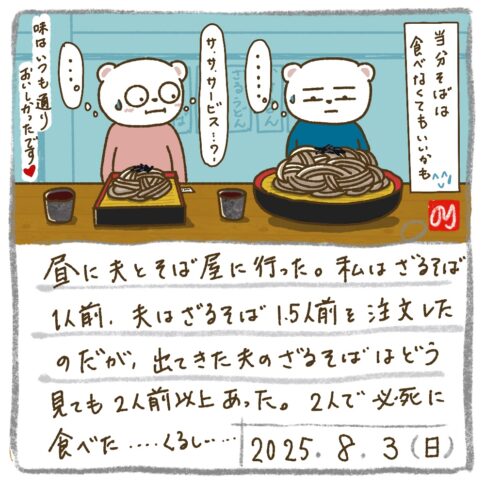 当分そばは
食べなくてもいいかも
・・・・・
サ、サ、サービス…?
・・・。
味はいつも通り
おいしかったです♥
昼に夫とそば屋に行った。私はざるそば
1人前、夫はざるそば1.5人前を注文した
のだが、出てきた夫のざるそばはどう
見ても2人前以上あった。2人で必死に
食べた・・・・くるしい・・・・
2025.8.3(日)